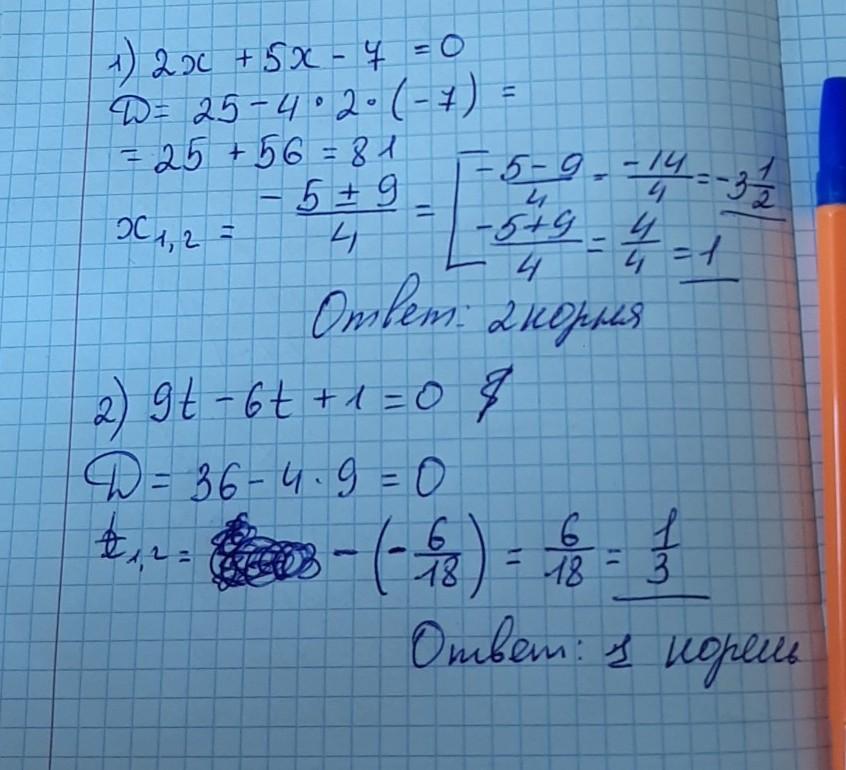 1) 2x + 5x - 7 = 0
D = 25 - 4 · 2 · (-7) =
= 25 + 56 = 81
x1,2 = (-5 ± 9)/4 = [ (-5 - 9)/4 = -14/4 = -3 1/2
(-5 + 9)/4 = 4/4 = 1
Ответ: 2 корня
2) 9t - 6t + 1 = 0
D = 36 - 4 · 9 = 0
t1,2 = - (- 6/18) = 6/18 = 1/3
Ответ: 1 корень